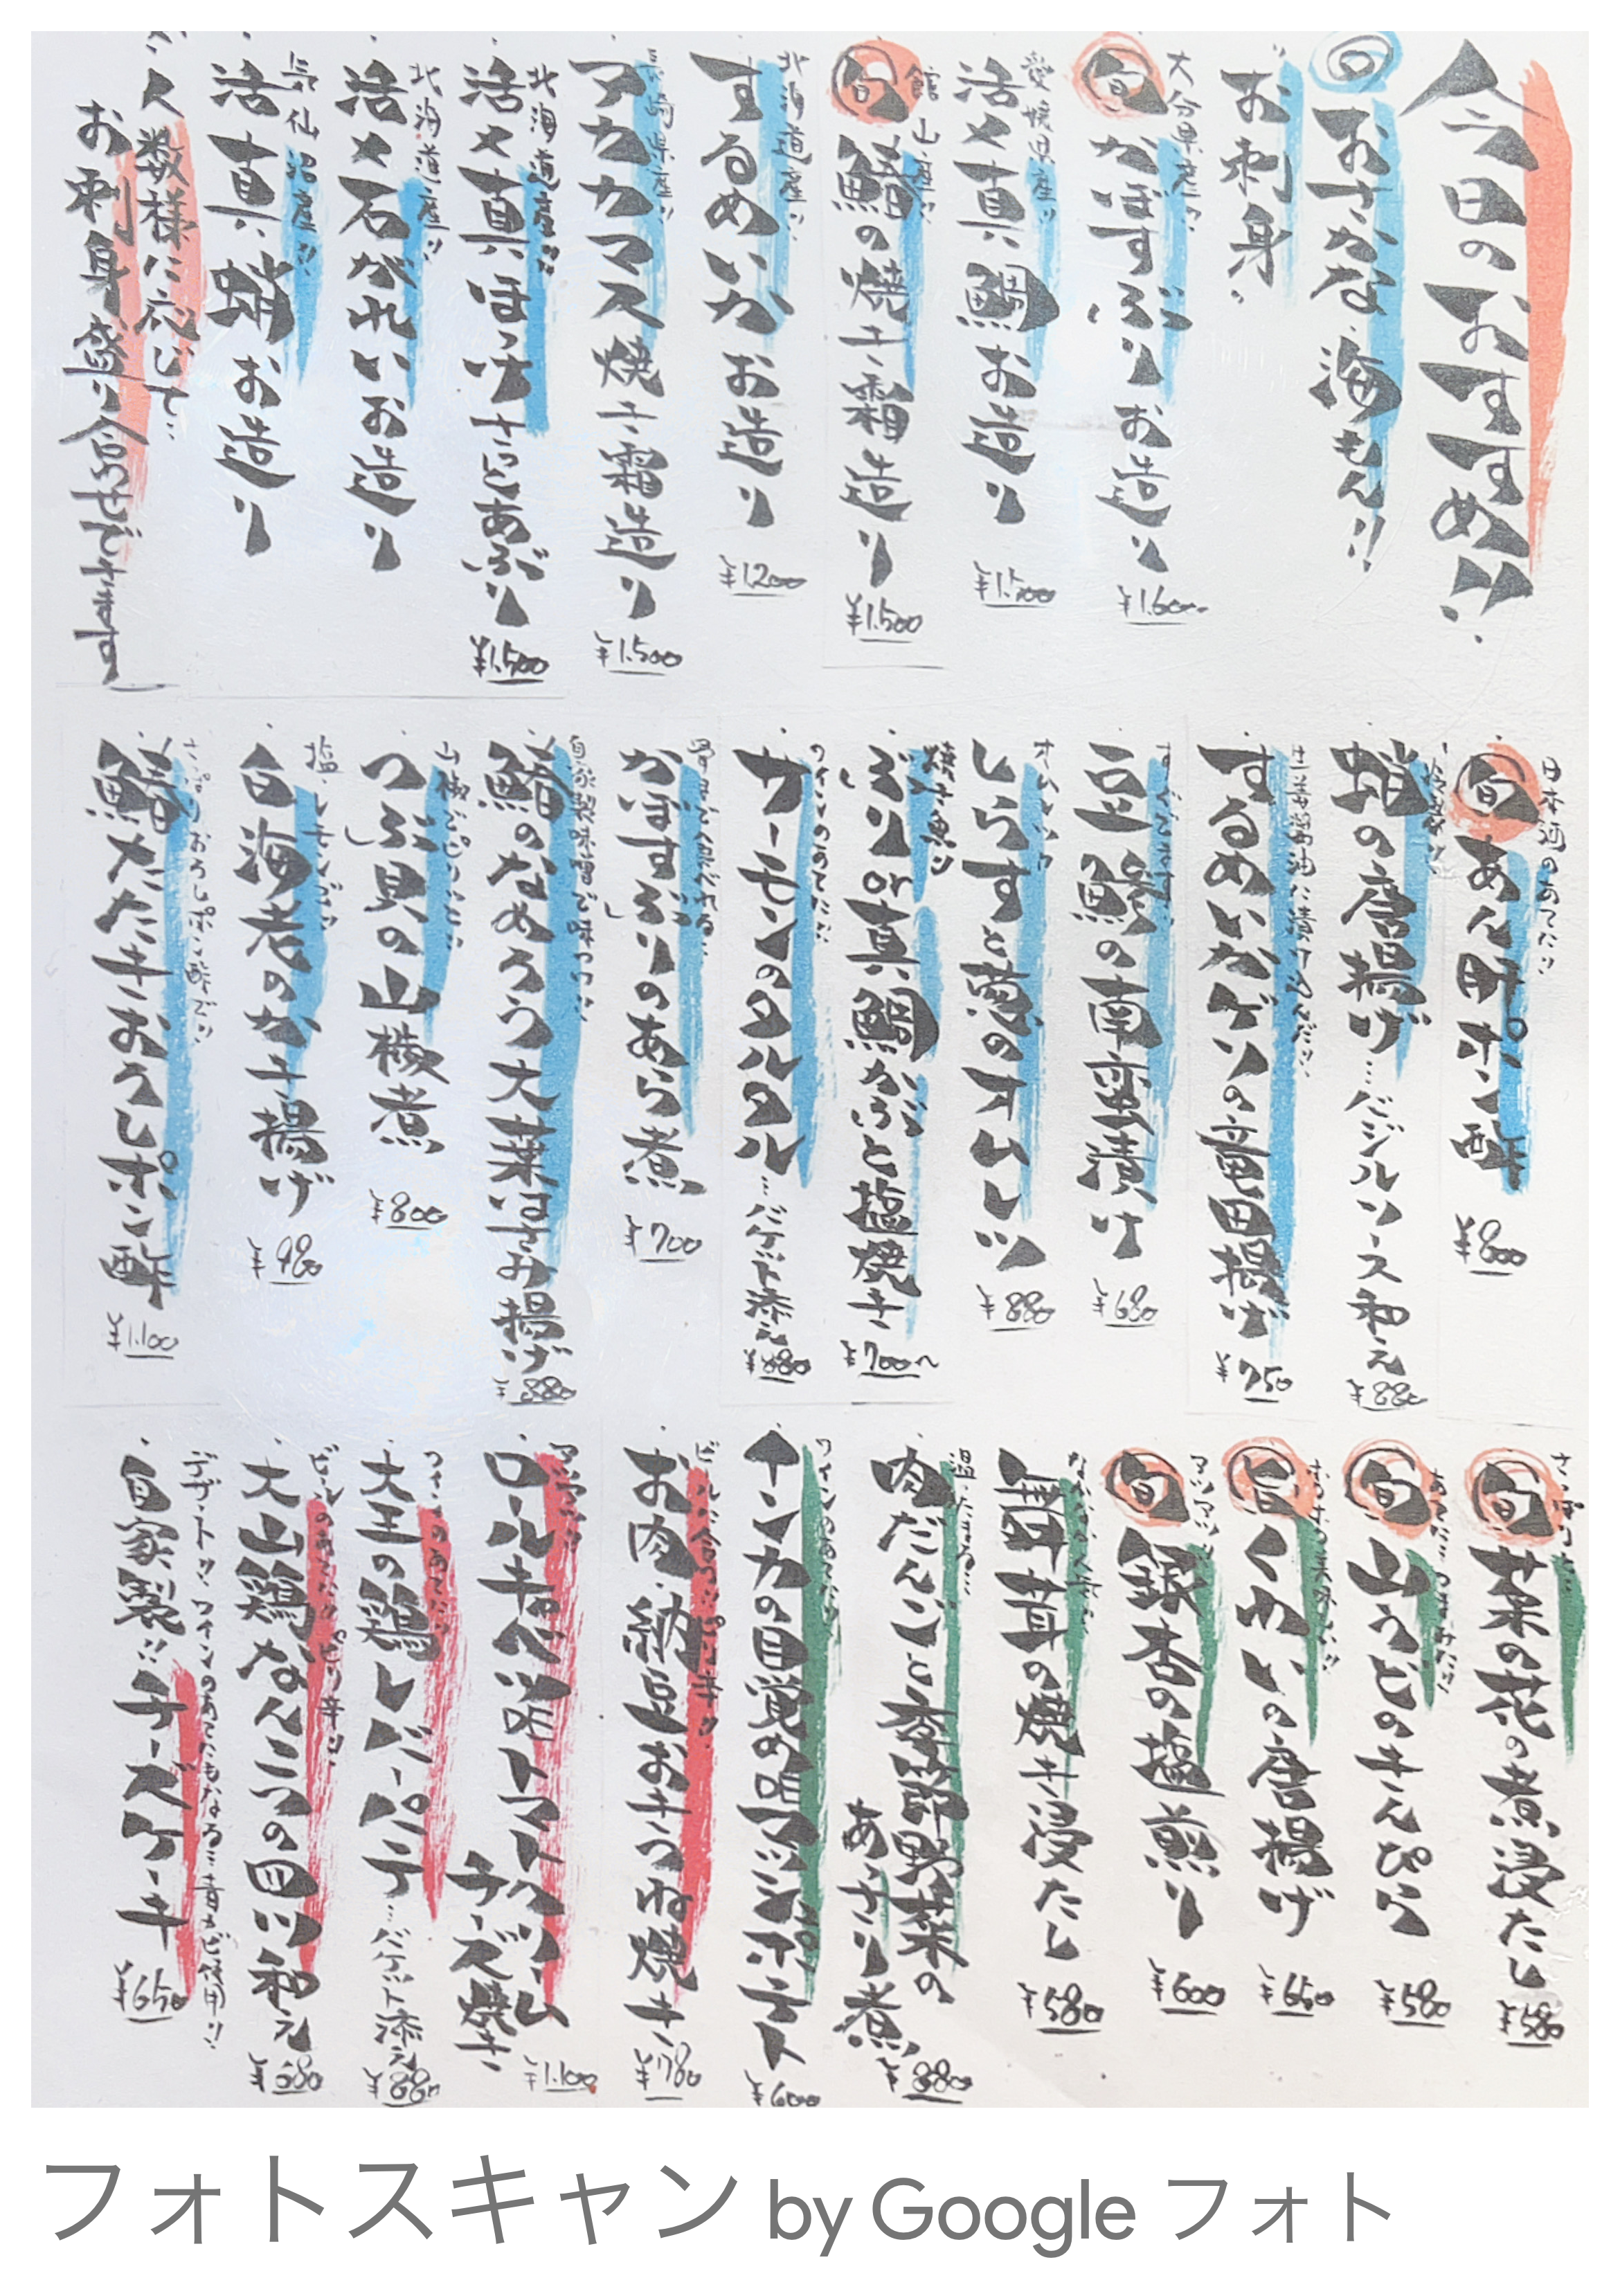 今日のおすすめ!!
旬おさかな、海もん!!
お刺身。
大分県産!!
旬かぼすぶりお造り ¥1,600
愛媛県産!!
活〆真鯛お造り ¥1,500
館山産!!
旬鰆の焼き霜造り ¥1,500
北海道産!!
するめいかお造り ¥1200
長崎県産!!
アカカマス焼き霜造り ¥1,500
北海道産!!
活〆真ほっけさっとあぶり ¥1,500
北海道産!!
活〆石がれいお造り
気仙沼産!!
活真蛸お造り
人数様に応じて…
お刺身盛り合わせできます
日本酒のあてに!!
旬あん肝ポン酢 ¥800
蛸の唐揚げ…バジルソース和え ¥880
生姜醤油に漬けこんだ!!
するめいかゲソの竜田揚げ ¥750
豆鯵の南蛮漬け ¥680
しらすと葱のオムレツ ¥880
焼き魚!!
ぶりor真鯛かぶと塩焼き ¥700〜
ワインのあてに!!
サーモンのタルタル…バケット添え ¥880
かぼすぶりのあら煮 ¥700
自家製味噌で味つけ!!
鰆のなめろう大葉はさみ揚げ ¥880
山椒でピリッと!!
つぶ貝の山椒煮 ¥800
塩レモンで!!
白海老のかき揚げ ¥980
さっぱりおろしポン酢で!!
鰆たたきおろしポン酢 ¥1,100
さっぱり!!
旬菜の花の煮浸たし ¥580
旬山うどのきんぴら ¥580
旨くわいの唐揚げ ¥650
アツアツ!!
旬銀杏の塩煎り ¥600
舞茸の焼き浸たし ¥580
肉だんごと季節野菜の
あっさり煮 ¥880
ワインのあてに!!
インカの目覚め味マッシュポテト ¥600
ビールに合う!!ピリ辛!!
お肉納豆おきつね焼き ¥780
アツアツ!!
ロールキャベツ味トマトクリーム
チーズ焼き ¥1,100
ワインのあてに!!
大王の鶏レバーパテ…バケット添え ¥880
ビールのあてに!!ピリ辛!!
大山鶏なんこつの四川和え ¥680
デザート!!ワインのあてにもなる…青カビ使用!!
自家製!!チーズケーキ ¥650
フォトスキャン by Google フォト